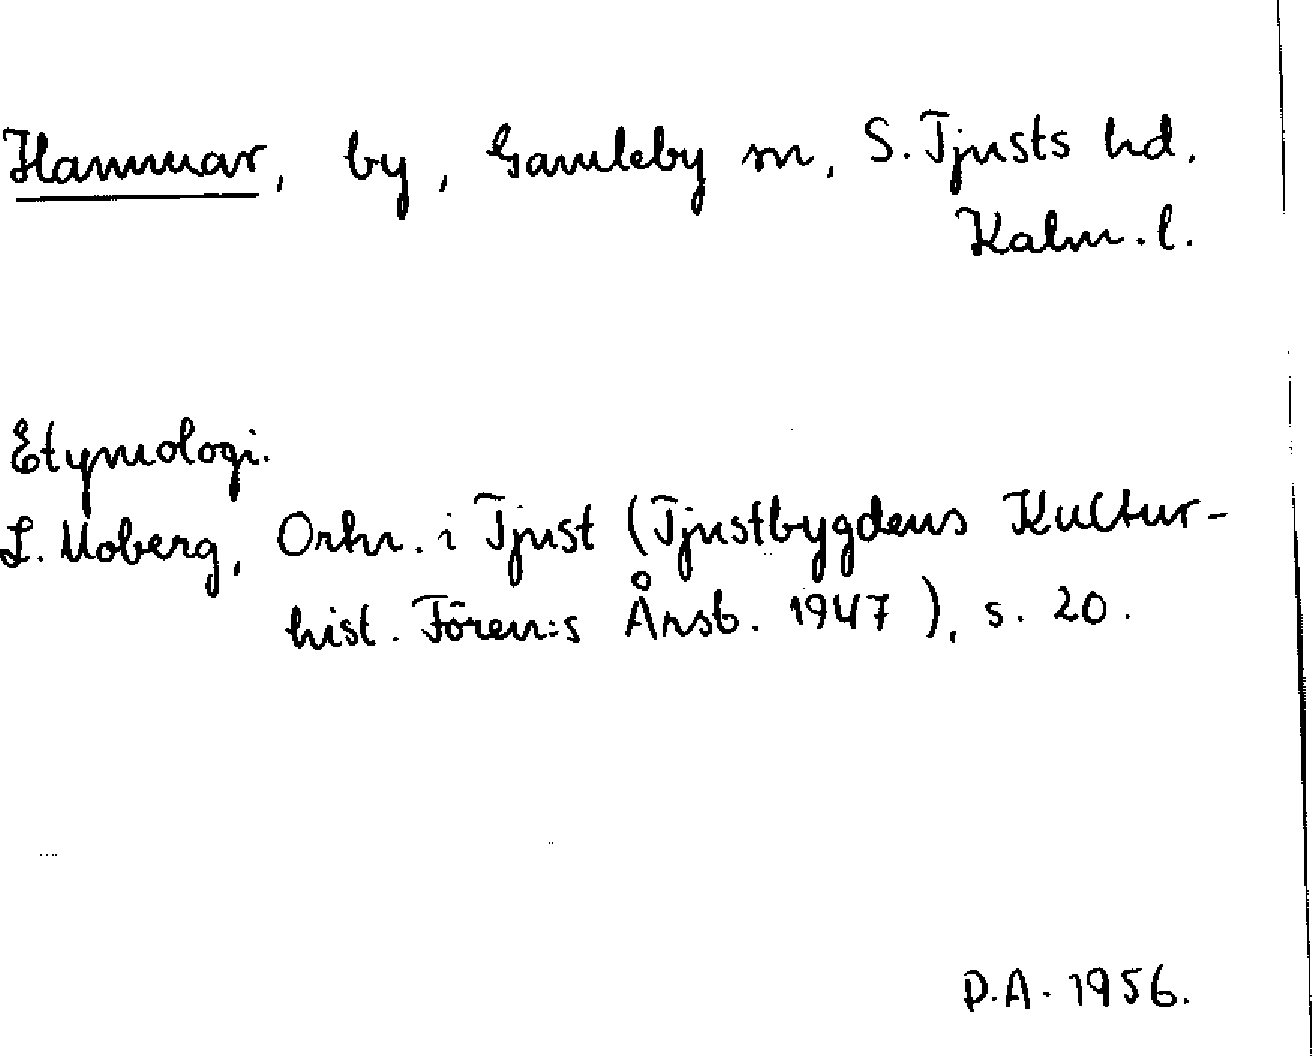 Hammar, by, Gamleby sn, S. Tjusts hd.
Kalm. l.
Etymologi.
L. Moberg, Ortn. i Tjust (Tjustbygdens Kultur-
hist. Fören:s Årsb. 1947), s. 20.
D.A. 1956.